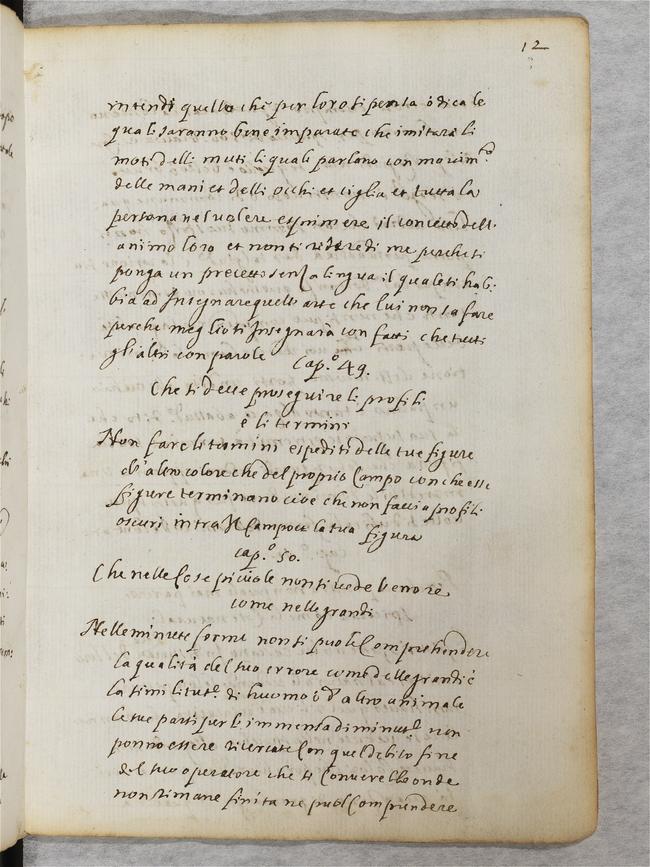 12
intendi quello chè per loro si parla ò dica le
quali saranno bene imparate che imitarai li
moti delli muti li quali parlano con movim.to
delle mani et delli occhi et ciglia et tutta la
persona nel volere esprimere il concetto dell'
animo loro et non ti ridere di me perche ti
ponga un precetto senza lingua il quale ti hab:
bia ad Insegnare quell'arte che lui non sa fare
perche meglio ti Insegnarà con fatti che tutti
gl'altri con parole Cap.o 49.
Che si deve proseguire li profili
è li termini
Non fare li termini espediti delle tue figure
d'altro colore che del proprio Campo con che esse
figure terminano cioe che non faccia profili
oscuri intra Il Campo et la tua figura
cap.o 50.
Che nelle Cose picciole non si vede l'errore
come nelle grandi
Nelle minute forme non si puo le Comprehendere
la qualità del suo errore come delle grandi è
la similitut.e di huomo ò d'altro animale
le sue parti per le immensa diminut.e non
ponno essere ricercate Con quel debito fine
del suo operatore che si Converebbe onde
non rimane finita ne puol Comprendere